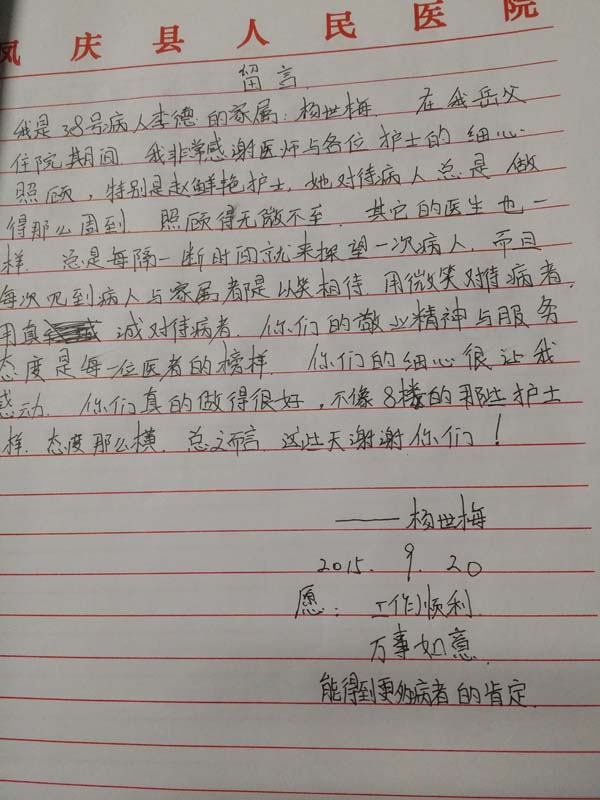 凤庆县人民医院
留言.
我是38号病人李德的家属:杨世梅. 在我岳父
住院期间 我非常感谢医师与各位护士的细心
照顾,特别是赵鲜艳护士,她对待病人总是做
得那么周到 照顾得无微不至. 其它的医生也一
样. 总是每隔一断时间就来探望一次病人.而且
每次见到病人与家属者都是以笑相待 用微笑对待病者.
用真诚对待病者. 你们的敬业精神与服务
态度是每一位医者的榜样. 你们的细心很让我
感动. 你们真的做得很好,不像8楼的那些护士
样.态度那么横.总之而言.这些天谢谢你们!
——杨世梅
2015. 9. 20
愿: 工作顺利.
万事如意.
能得到更多病者的肯定.